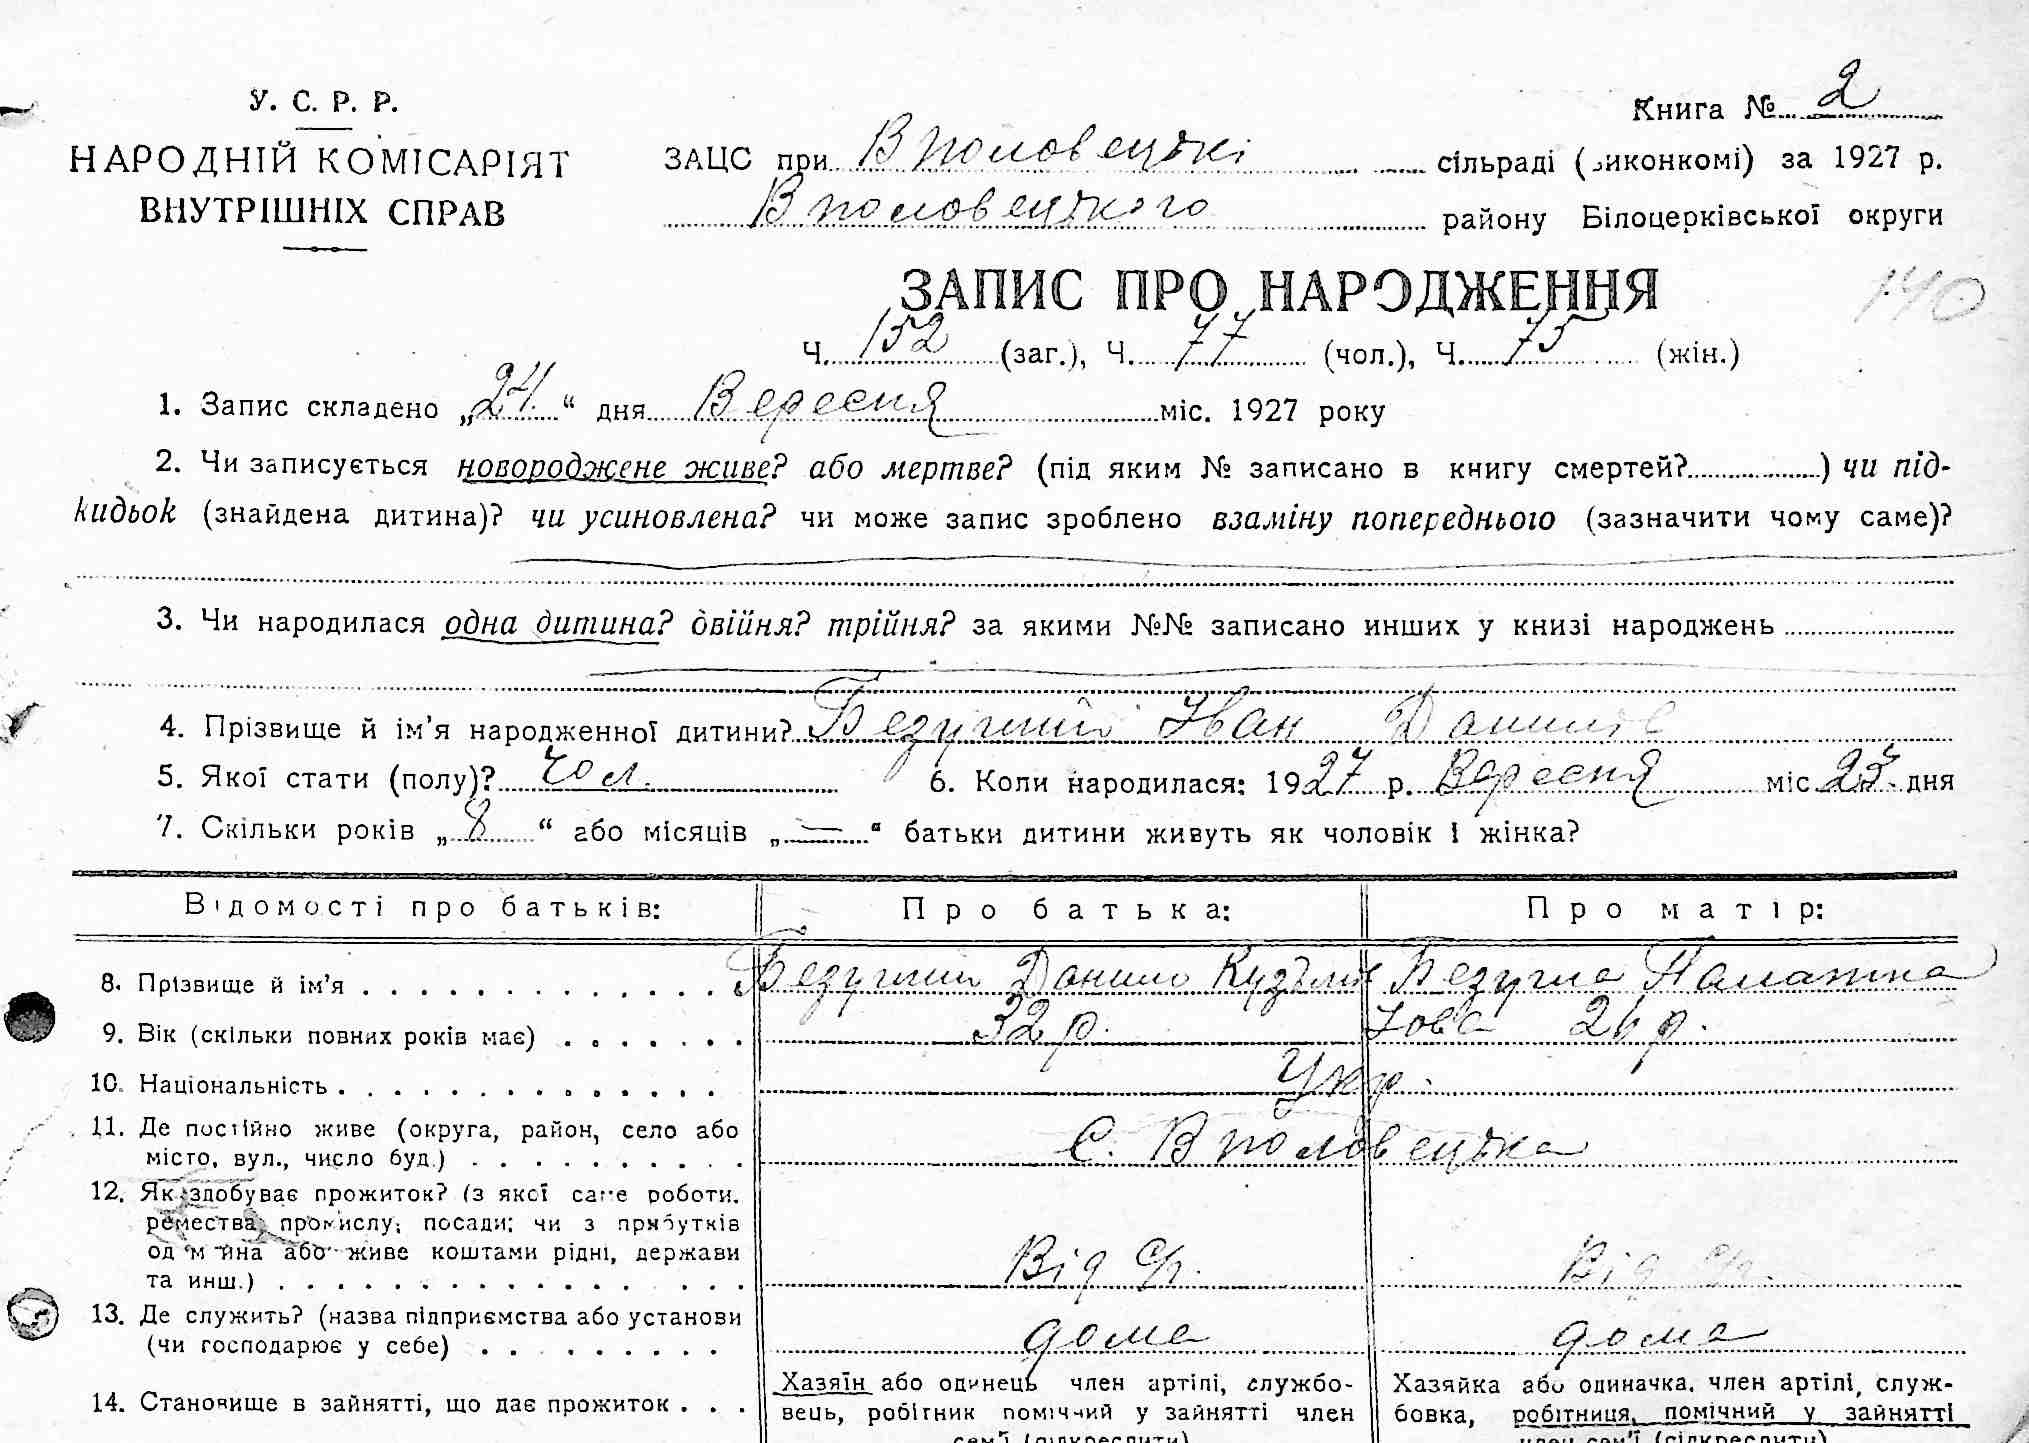 У. С. Р. Р.
НАРОДНІЙ КОМІСАРІЯТ
ВНУТРІШНІХ СПРАВ
Книга № 2
ЗАЦС при В половецькі сільраді (виконкомі) за 1927 р.
В половецького району Білоцерківської округи
ЗАПИС ПРО НАРОДЖЕННЯ
140
Ч. 152 (заг.), Ч. 77 (чол.), Ч. 75 (жін.)
1. Запис складено „24“ дня Вересня міс. 1927 року
2. Чи записується новороджене живе? або мертве? (під яким № записано в книгу смертей?) чи під-
кидьок (знайдена дитина)? чи усиновлена? чи може запис зроблено взаміну попереднього (зазначити чому саме)?
3. Чи народилася одна дитина? двійня? трійня? за якими №№ записано инших у книзі народжень
4. Прізвище й ім'я народженної дитини? Безуглий Іван Данилів
5. Якої стати (полу)? Чол. 6. Коли народилася: 1927 р. Вересня міс 23 дня
7. Скільки років „8“ або місяців „—“ батьки дитини живуть як чоловік і жінка?
Відомості про батьків: Про батька: Про матір:
8. Прізвище й ім'я Безуглий Данило Безугла Палажка
9. Вік (скільки повних років має) 32 р. Іова р.
10. Національність Укр.
11. Де постійно живе (округа, район, село або
місто, вул., число буд.) С. В половецька
12. Як здобуває прожиток? (з якої саме роботи,
ремества, промислу; посади; чи з прибутків
од майна або живе коштами рідні, держави
та инш.) Від с/г. Від с/г.
13. Де служить? (назва підприємства або установи
(чи господарює у себе) дома дома
14. Становище в зайнятті, що дає прожиток
Хазяїн або одинець член артілі, службо-
вець, робітник помічний у зайнятті член
сем'ї (підкреслити)
Хазяйка або одиначка, член артілі, служ-
бовка, робітниця, помічний у зайнятті
член сем'ї (підкреслити)